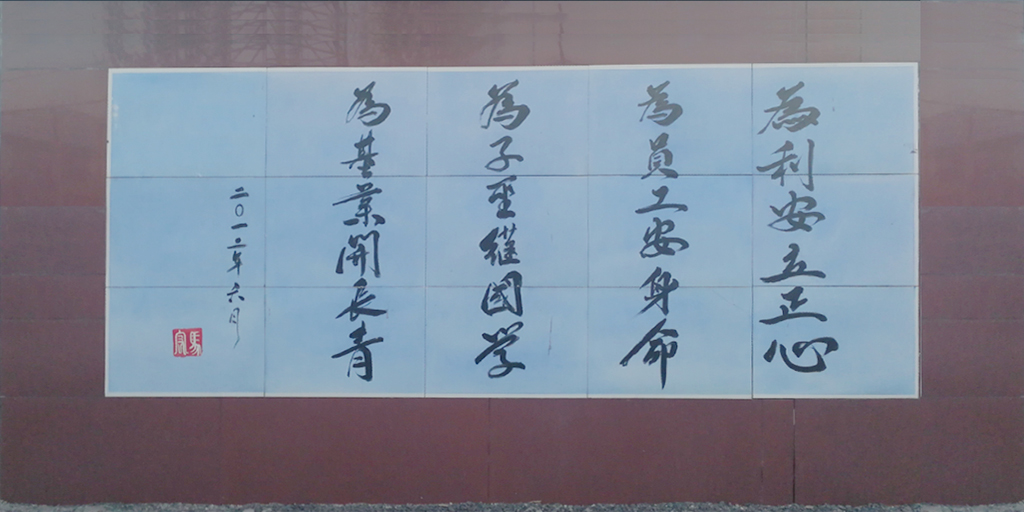 為利安立正心
為員工安身命
為子聖繼國学
為基業開長青
二〇一二年六月